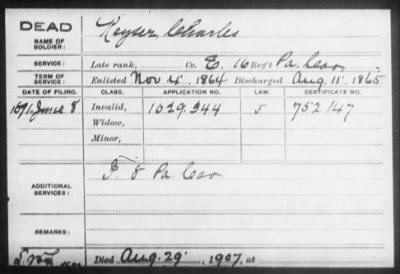 DEAD
NAME OF SOLDIER: Keyser Charles
SERVICE: Late rank, Co. E. 16 Reg't Pa. Cav
TERM OF SERVICE: Enlisted Nov 4, 1864 Discharged Aug. 11, 1865
DATE OF FILING. CLASS. APPLICATION NO. LAW. CERTIFICATE NO.
1891, June 8 Invalid, 1029.344 J 752147
Widow,
Minor,
ADDITIONAL SERVICES: F. 8 Pa. Cav
REMARKS:
Died Aug. 29, 1907, at